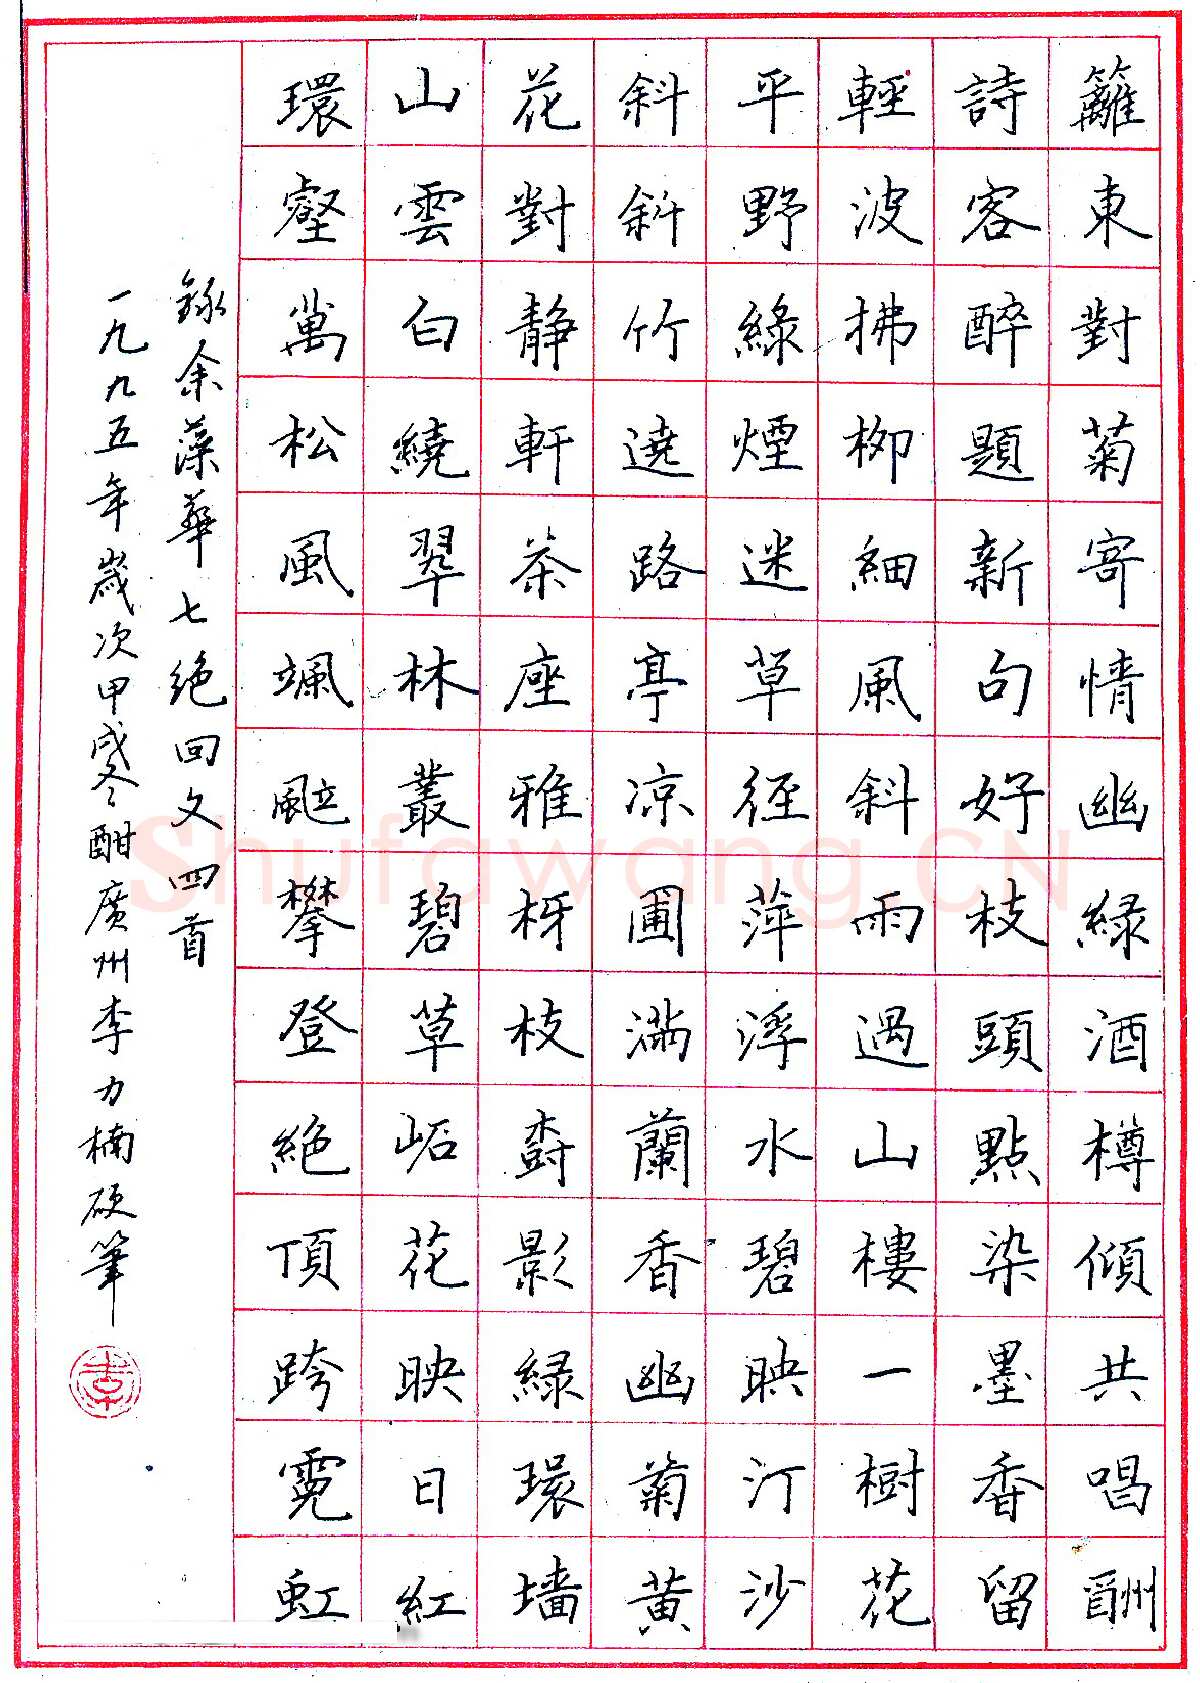 籬東對菊寄情幽綠酒樽傾共唱酬
詩客醉題新句好枝頭點染墨香留
輕波拂柳細風斜雨過山樓一樹花
平野綠煙迷草徑萍浮水碧映汀沙
斜斜竹遶路亭涼圃滿蘭香幽菊黃
花對靜軒茶座雅枒枝窗影綠環墻
山雲白繞翠林叢碧草岩花映日紅
環壑萬松風颯颯攀登絕頂跨霓虹
錄余藻華七绝回文四首
一九九五年歲次甲戌冬酣廣州李力楠硬筆
Shufawang.CN